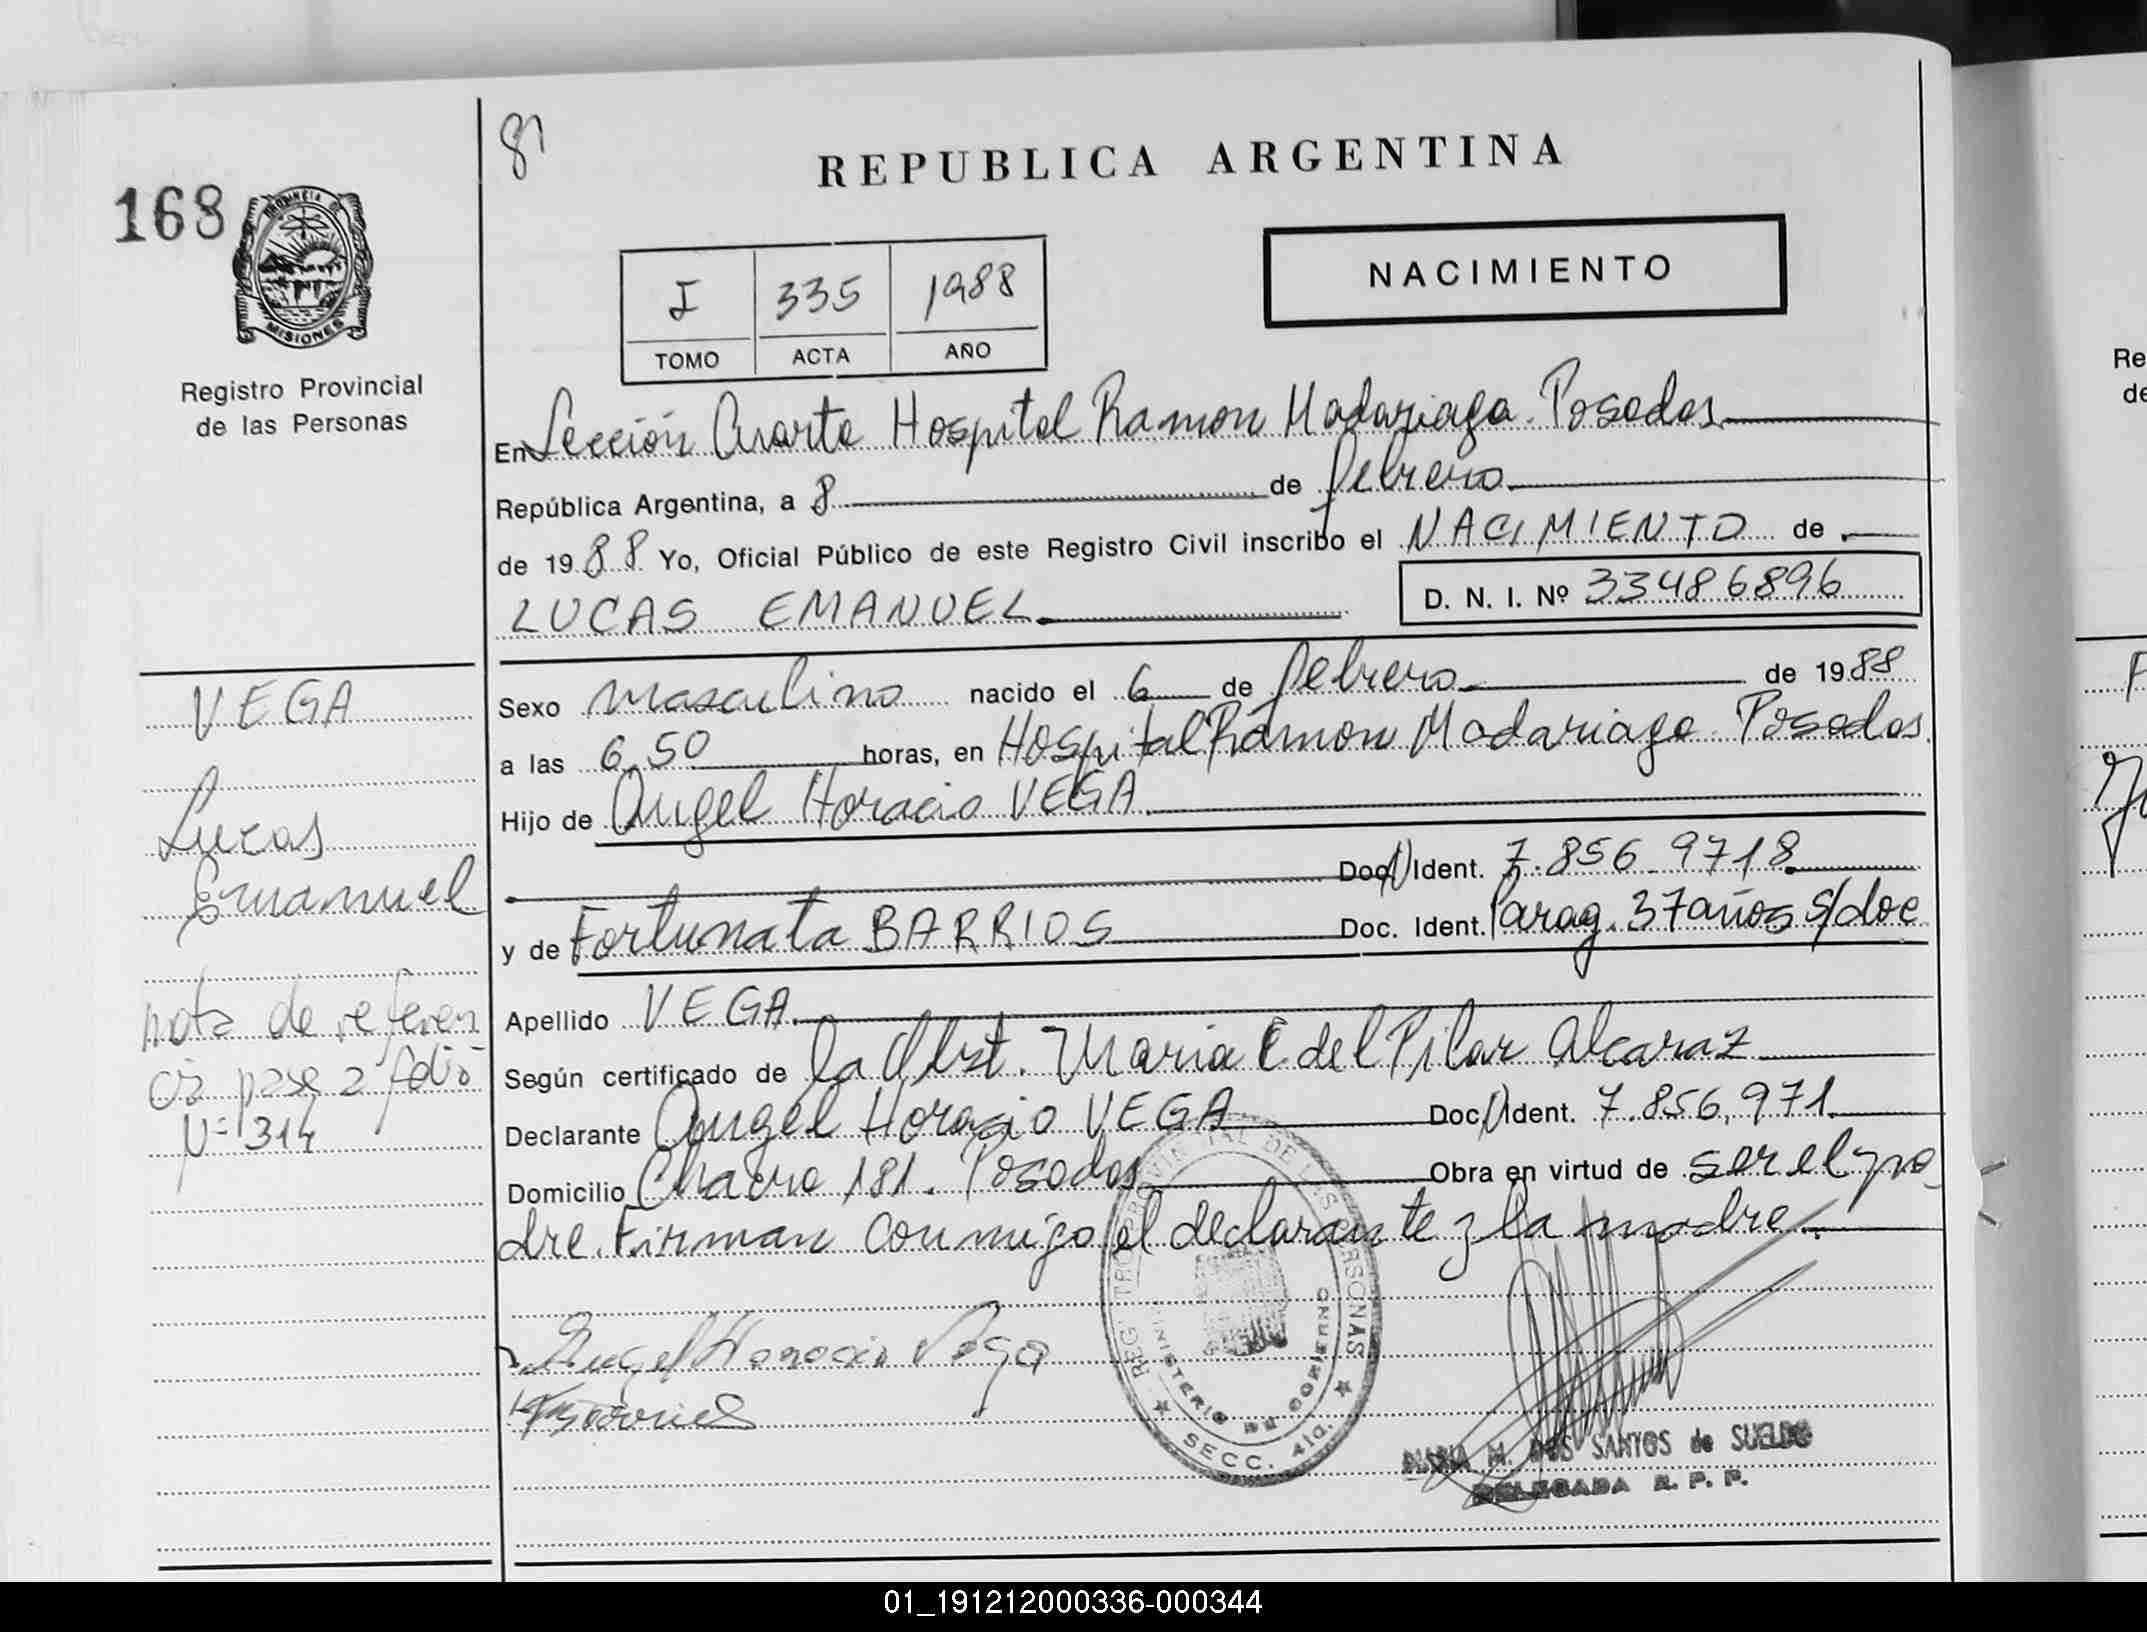 81
168
PROVINCIA DE
MISIONES
Registro Provincial
de las Personas
REPUBLICA ARGENTINA
NACIMIENTO
I 335 1988
TOMO ACTA AÑO
En Sección Cuarta Hospital Ramon Madariaga. Posadas
República Argentina, a 8 de febrero
de 1988 Yo, Oficial Público de este Registro Civil inscribo el NACIMIENTO de
LUCAS EMANUEL
D. N. I. Nº 33486896
Sexo masculino nacido el 6 de febrero de 1988
a las 6,50 horas, en Hospital Ramon Madariaga. Posadas
Hijo de Angel Horacio VEGA
Doc. Ident. 7.856.9718
y de Fortunata BARRIOS Doc. Ident. Parag. 37 años s/doc
Apellido VEGA
Según certificado de la Obst. Maria C del Pilar Alcaraz
Declarante Angel Horacio VEGA Doc. Ident. 7.856,971
Domicilio Chacra 181. Posadas Obra en virtud de ser el pa
dre. Firman conmigo el declarante y la madre.
Angel Horacio Vega
VEGA
Lucas
Emanuel
nota de referen
cia pase a folio
Nº 314
DE LAS PERSONAS
MINISTERIO DE GOBIERNO
SECC. 4ta.
M. DOS SANTOS de SUELDO
DELEGADA R. P. P.
01_191212000336-000344